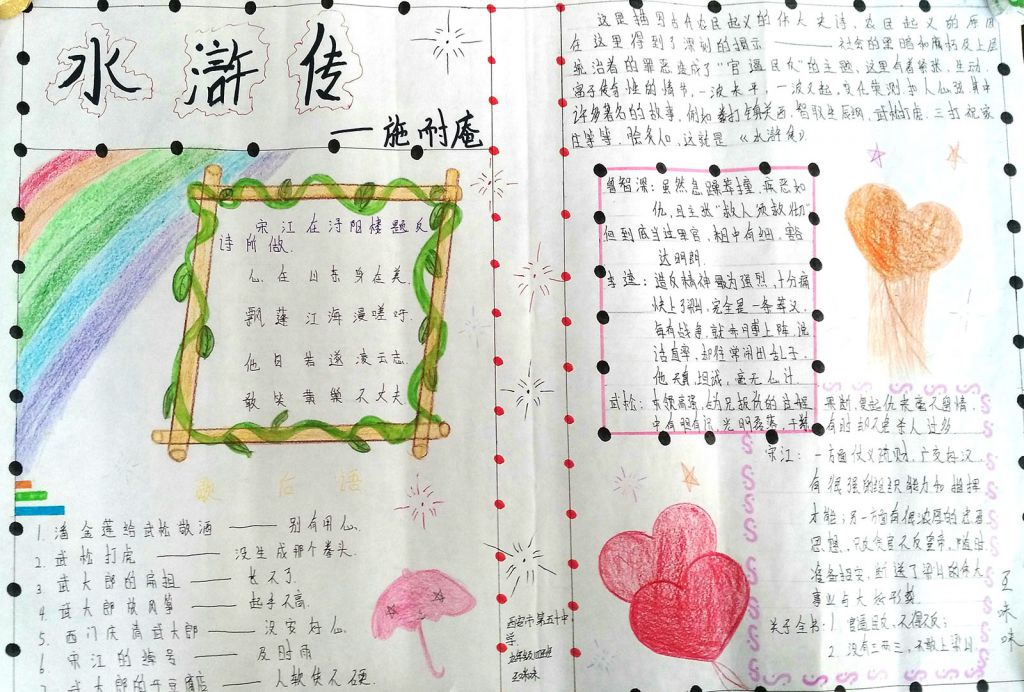 水浒传
—施耐庵
宋江在浔阳楼题反
诗所做.
心在山东身在吴.
飘蓬江海漫嗟吁.
他日若遂凌云志.
敢笑黄巢不丈夫.
歇后语
1. 潘金莲给武松敬酒 —— 别有用心.
2. 武松打虎 —— 没生成那个拳头.
3. 武大郎的扁担 —— 长不了.
4. 武大郎放风筝 —— 起手不高.
5. 西门庆请武大郎 —— 没安好心.
6. 宋江的绰号 —— 及时雨
7. 武大郎的豆腐店 —— 人软货不硬.
这是描写古代农民起义的伟大史诗，农民起义的原因
在这里得到了深刻的揭示 —— 社会的黑暗和腐朽及上层
统治者的罪恶造成了“官逼民反”的主题，这里有着紧张，生动，
富于传奇性的情节，一波未平，一波又起，变化莫测，扣人心弦其中
许多著名的故事，例如拳打镇关西，智取生辰纲，武松打虎，三打祝家
庄等等，脍炙人口，这就是《水浒传》
鲁智深：虽然急躁莽撞，疾恶如
仇，且主张“救人须救彻”
但到底当过军官，粗中有细，豁
达明朗.
李逵：造反精神最为强烈，十分痛
快上了梁山，完全是一条莽汉，
每有战争，就赤膊上阵，说
话直率，却经常闹出乱子，
他天真，坦诚，毫无心计.
武松：武艺高强，为兄报仇的过程
中有胆有识，光明磊落，干练
果断，复起仇来毫不留情，
有时却不免杀人过多.
宋江：一方面仗义疏财，广交好汉
有很强的组织能力和指挥
才能；另一方面有很浓厚的忠君
思想，只反贪官不反皇帝，随时
准备招安，断送了梁山的伟大
事业与大好形势.
关于全书：1. 官逼民反，不得不反；
2. 没有三两三，不敢上梁山.
西安市第五十中
学
王咪咪
王咪咪